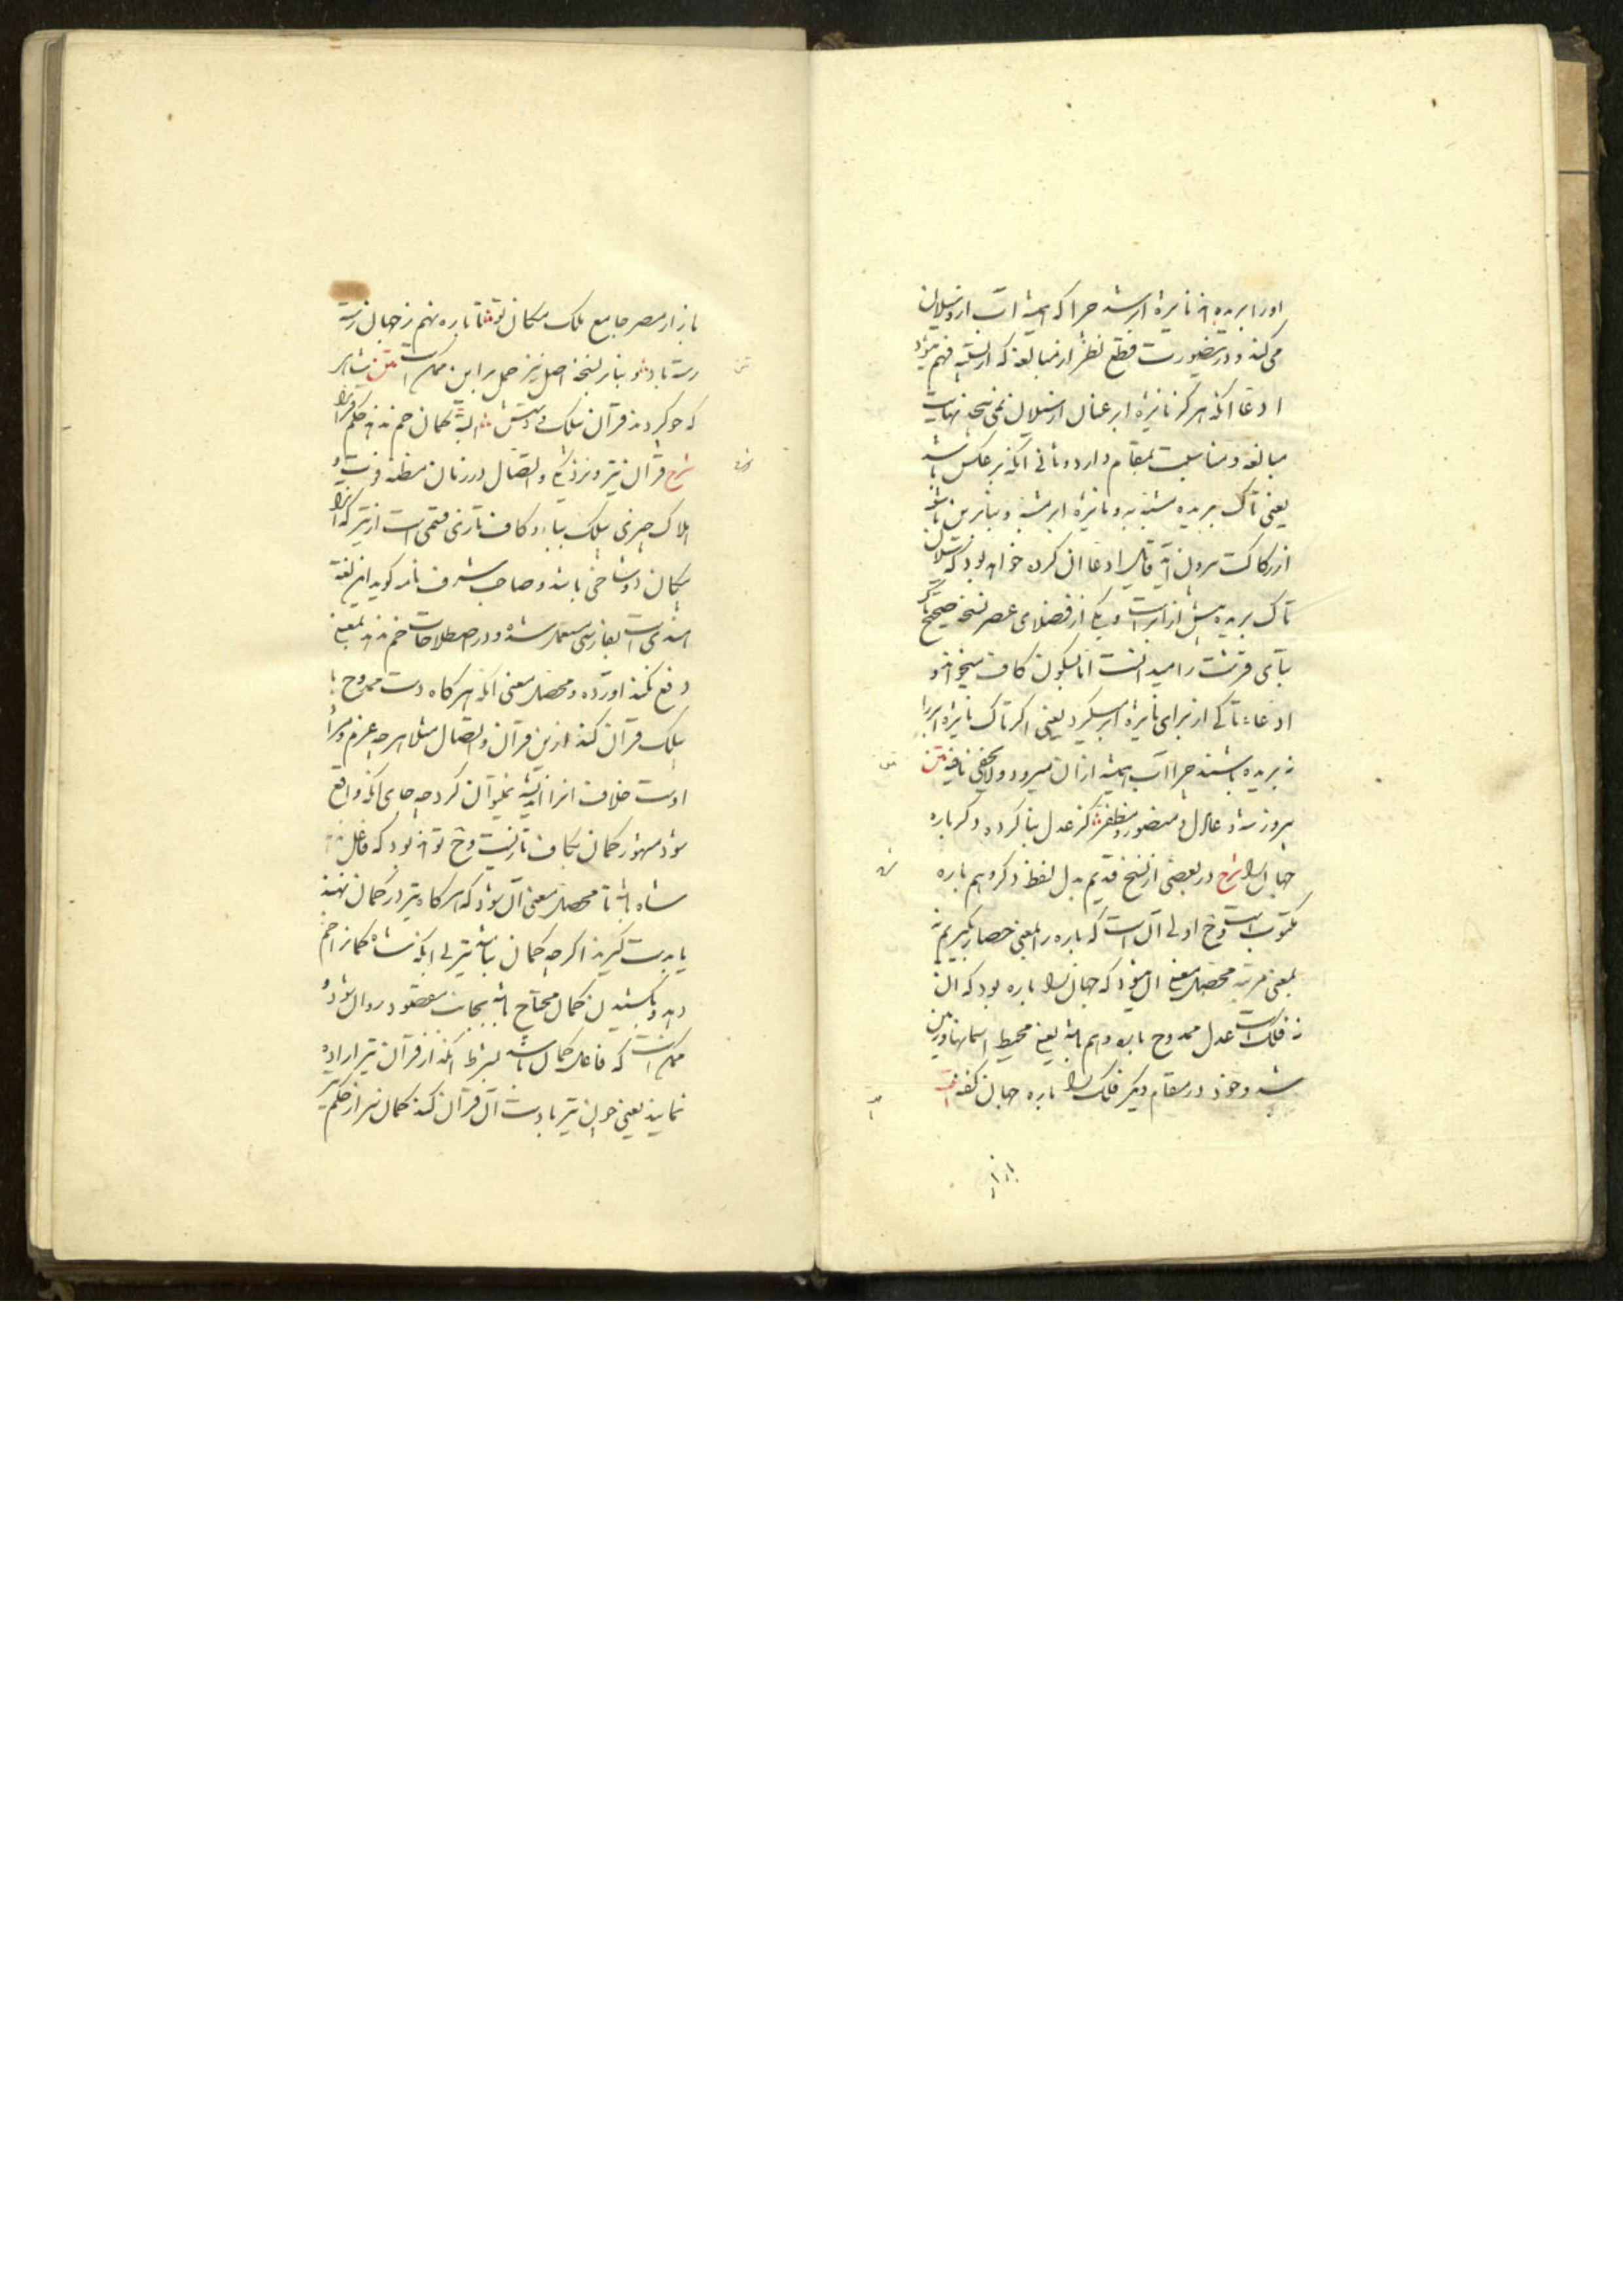 اورا بریده اند نایژه ابر شد چرا که همیشه آب ازو سیلان
می کند و درینصورت قطع نظر از مبالغه که از تشبیه فهم میشود
ادعا آنکه هرگز نایژه ابر عنان از سیلان نمی پیچد نهایت
مبالغه و مناسبت بمقام دارد و ثانی آنکه بر عکس باشد
یعنی تاک بریده مشبه به و نایژه ابر مشبه و بنابرین باشد
از رکاکت بیرون آید قایل ادعا آن کرده خواهد بود که سیلان
تاک بریده بیش از ابر است و یکی از فضلای عصر نسخه صحیح تاک
بتای قرشت را میدانست اما بسکون کاف میخواند و
ادعاء تاکی از برای نایژه ابر میکرد یعنی اگر تاک نایژه ابر را
نه بریده باشند چرا آب همیشه ازان میرود و لا یخفی ما فیه متن
پیروز شه عادل و منصور و مظفر کز عدل بنا کرده دگر باره
جهان را شرح در بعضی از نسخ قدیم بدل لفظ دگر وهم باره
مکتوب است وح اولی آن است که باره را بمعنی حصار بگیریم نه
بمعنی مرتبه محصل معنی آن میشود که جهان را باره بود که آن
فلک است عدل ممدوح باره دهم باشد یعنی محیط آسمانها و زمین
شد و خود در مقام دیگر فلک را باره جهان گفته
بازار
بازار مصر جامع ملک مکان تو تا باره نهم ز جهان رسته
رسته باد و بنابر نسخه اصل نیز حمل بر این ممکن است متن
که جو کردند قرآن بیلک و دستش البته کمان خم ندهد حکم قرانرا
شرح قرآن نیز و نزدیکی و اتصال در زمان مظنه فوت و
هلاک چیزی بیلک بباء و کاف تازی قسمی است از تیر که آنرا
پیکان دوشاخی باشد و صاحب شرف نامه گوید این لغت
هندی است بفارسی مستعمل شده و در اصطلاحات خم ندهد بمعنی
دفع نکند آورده و محصل معنی آنکه هر گاه دست ممدوح با
بیلک قرآن کند ازین قرآن و اتصال مثلا هر چه عزم و مراد
اوست خلاف آنرا اندیشه نمیتوان کرد چه جای آنکه واقع
شود مشهور کمان بکاف تازیست وح تواند بود که فاعل
شاه باشد تا محصل معنی آن شود که هر گاه تیر در کمان نهند
یا بدست گیرند اگر چه کمان باشد تیر بی آنکه شاه کمانرا خم
دهد و بکشیدن کمان محتاج باشد بجانب مقصود روان شود و
ممکن است که فاعل کمان باشد بشرط آنکه از قرآن تیر اراده
نمایند یعنی چون تیر با دست آن قرآن کند کمان سر از حکم تیر